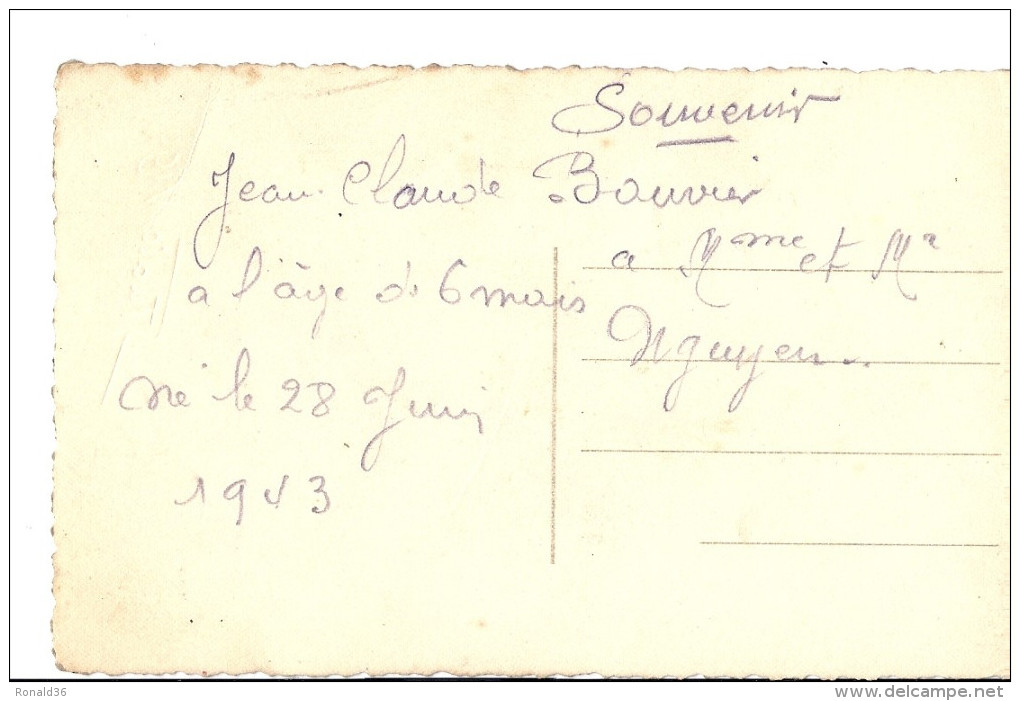 Souvenir
Jean Claude Bouvier
a l'âge de 6 mois
né le 28 Juin
1943
a Mme et Mr
Nguyen
Ronald36
www.delcampe.net